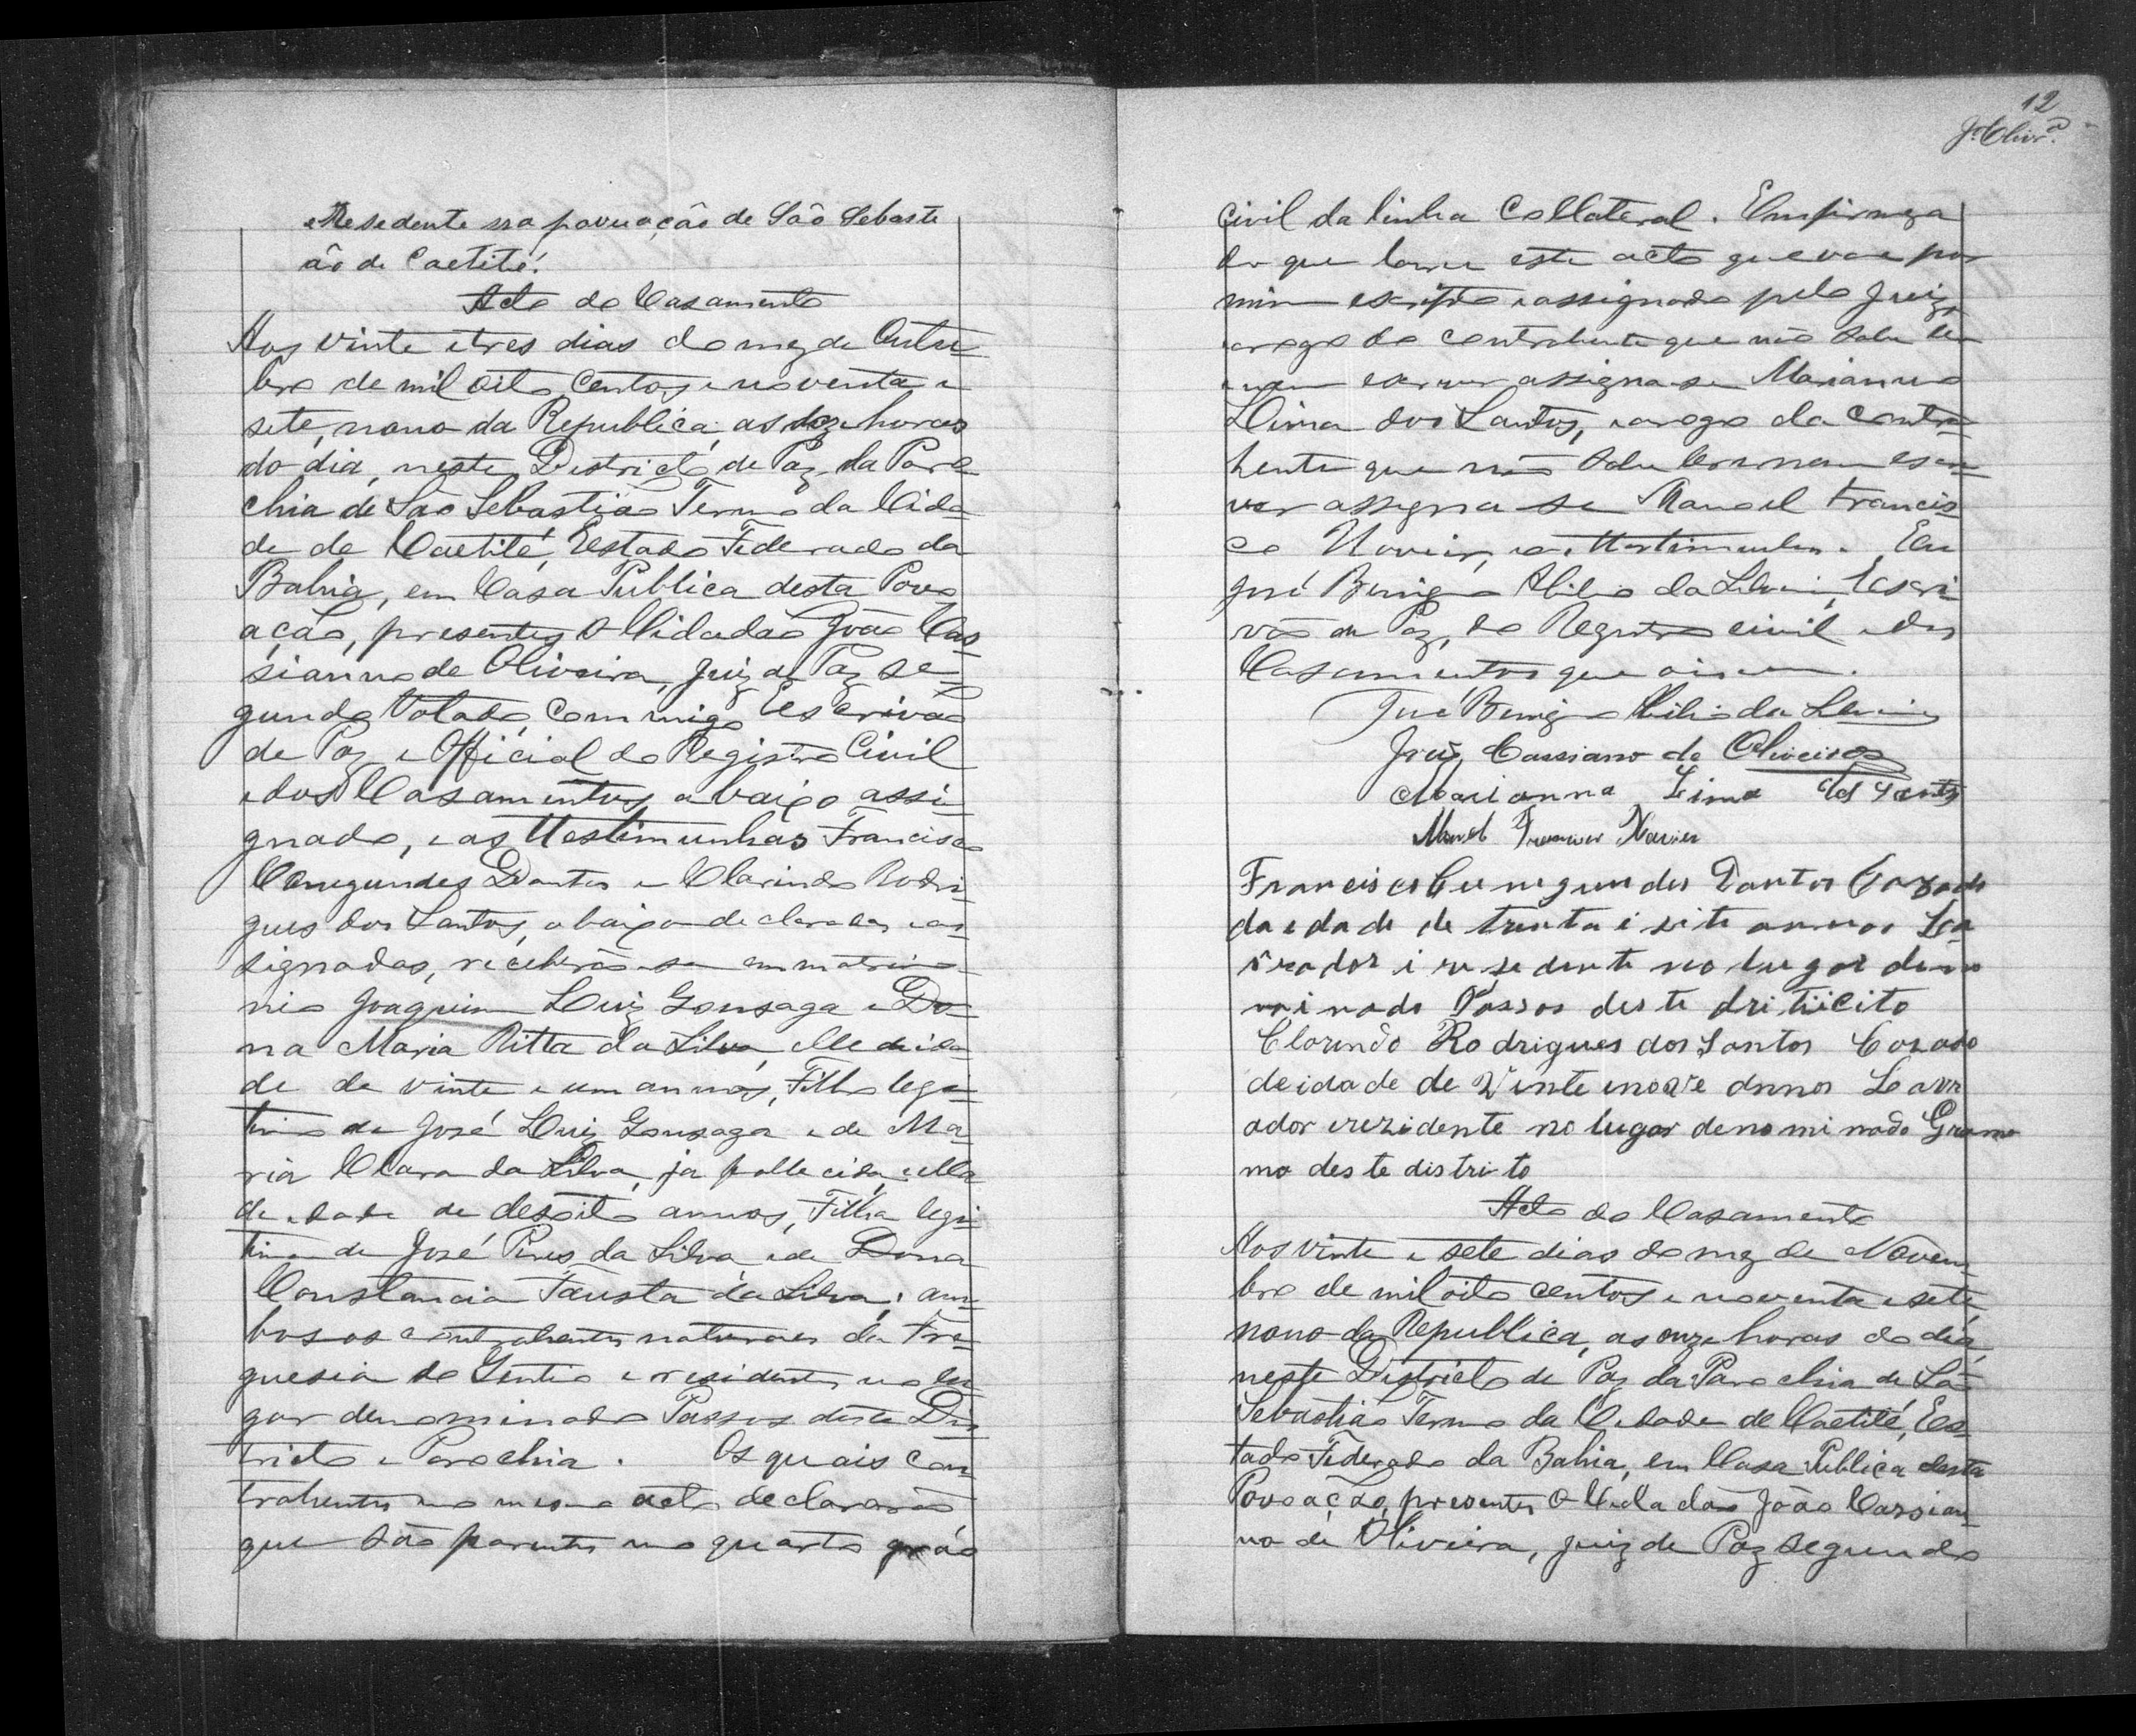 e Resedente na povuação de São Sebasti
ão de Caetité.
Acto do Casamento
Aos vinte e tres dias do mez de Outu
bro de mil oito centos e noventa e
sete, nono da Republica, as doze horas
do dia, neste Districto de Paz da Paro
chia de São Sebastião Termo da Cida
de de Caetité, Estado Federado da
Bahia, em Casa Publica desta Povo
ação, presentes o Cidadão João Cas
sianno de Oliveira, Juiz de Paz se
gundo Votado, commigo Escrivão
de Paz e Official do Registro Civil
e dos Casamentos abaixo assi
gnado, e as ttestimunhas Francisco
Cunegundes Dantes e Clarindo Rodri
gues dos Santos, abaixo declarados e as
signados, receberão-se em matrimo
nio Joaquim Luiz Gonsaga e Do
na Maria Ritta da Silva, elle de ida
de de vinte e um annos, Filho legi
timo de José Luiz Gonsaga e de Ma
ria Clara da Silva, ja fallecida, ella
de idade de desoito annos, Filha legi
tima de José Pires da Silva e de Dona
Constancia Fausta da Silva; am
bos os contrahentes naturaes da Fre
guesia do Gentio e residentes no lu
gar denominado Passos deste Dis
tricto e Parochia. Os quais con
trahentes no mesmo acto declararão
que são parentes no quarto gráo
12
J. Olivrª.
civil da linha Collateral. Em firmeza
do que lavrei este acto que vae por
mim escripto e assignado pelo Juiz,
arogo do contrahente que não sabe ler
e nem escrever assigna-se Marianno
Lima dos Santos, e arogo da contra
hente que não sabe ler e nem escre
ver assigna-se Manoel Francis
co Xavier, e as ttestimunhas. Eu
José Benigno Abilio da Silva, Escri
vão de Paz, do Registro civil e dos
Casamentos que o escrevi.
José Benigno Abilio da Silva
João Cassiano de Oliveira
Marianna Lima dos Santos
Manoel Francisco Xavier
Francisco Cunegundes Dantos Cazado
da edade de trinta i site annos La
vrador i resedente no lugar deno
minado Passos deste dritricito
Clorindo Rodrigues dos Santos Cazado
de idade de Vinte e nove annos Lavr
ador e rezidente no lugar denominado Grama
mo deste distrito
Acto do Casamento
Aos vinte e sete dias do mez de Novem
bro de mil oito centos e noventa e sete,
nono da Republica, as onze horas do dia,
neste Districto de Paz da Parochia de São
Sebastião Termo da Cidade de Caetité, Es
tado Federado da Bahia, em Casa Publica desta
Povoação, presentes o Cidadão João Cassian
no de Oliveira, juiz de Paz segundo